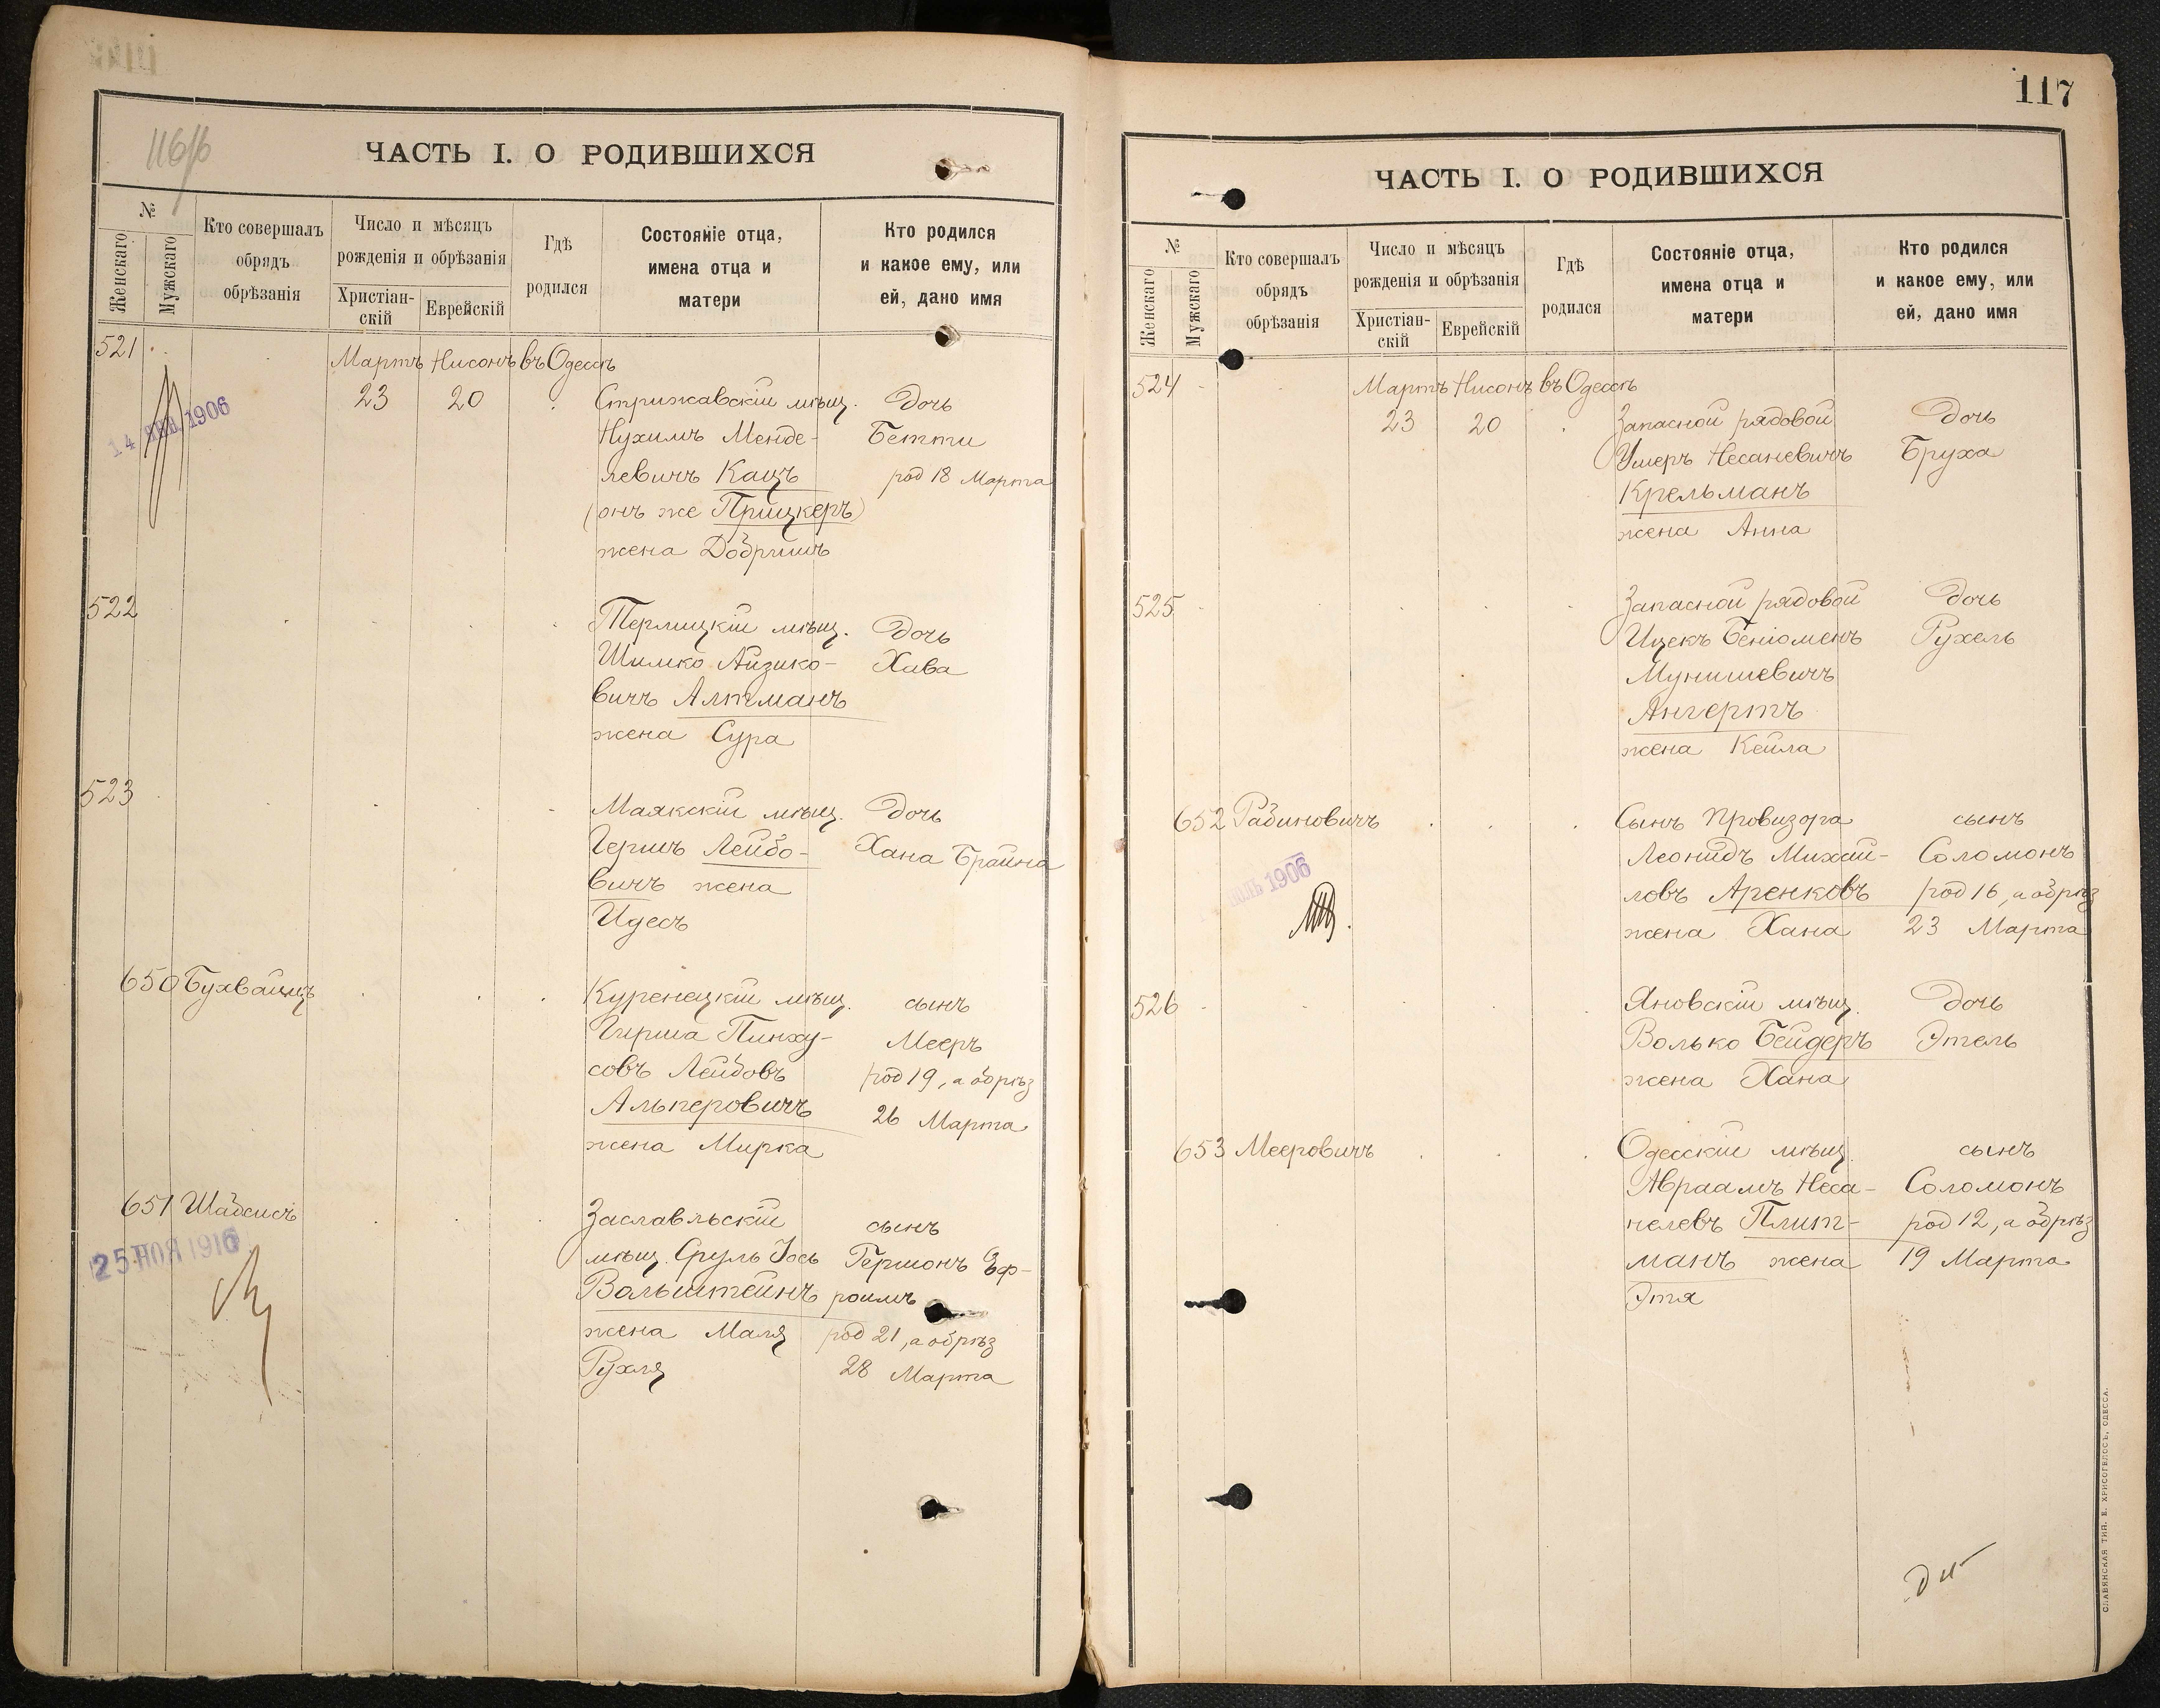 116/б
ЧАСТЬ I. О РОДИВШИХСЯ
№
Женскаго
Мужскаго
Кто совершалъ
обрядъ
обрѣзанія
Число и мѣсяцъ
рожденія и обрѣзанія
Христіан-
скій
Еврейскій
Гдѣ
родился
Состояніе отца,
имена отца и
матери
Кто родился
и какое ему, или
ей, дано имя
521 Мартъ Нисонъ въ Одессѣ
23 20 Стрижавскій мѣщ. Дочь
Нухимъ Менде- Бетти
левичъ Кацъ род 18 Марта
(онъ же Прицкеръ)
жена Добришъ
14 1906
522
Терлицкій мѣщ. Дочь
Шимко Айзико- Хава
вичъ Алтманъ
жена Сура
523
Маякскій мѣщ. Дочь
Гершъ Лейбо- Хана Брайна
вичъ жена
Идесъ
650 Бухвайцъ Куренецкій мѣщ. сынъ
Гирша Пинху- Мееръ
совъ Лейбовъ род 19, а обрѣз
Альперовичъ 26 Марта
жена Мирка
651 Шабсисъ Заславльскій сынъ
мѣщ. Сруль Іось Гершонъ Эф-
Вольштейнъ роимъ
жена Маля род 21, а обрѣз
Рухля 28 Марта
25 НОЯ 1916
117
ЧАСТЬ I. О РОДИВШИХСЯ
№
Женскаго
Мужскаго
Кто совершалъ
обрядъ
обрѣзанія
Число и мѣсяцъ
рожденія и обрѣзанія
Христіан-
скій
Еврейскій
Гдѣ
родился
Состояніе отца,
имена отца и
матери
Кто родился
и какое ему, или
ей, дано имя
524 Мартъ Нисонъ въ Одессѣ
23 20 Запасной рядовой Дочь
Ушеръ Несаневичъ Бруха
Крельманъ
жена Анна
525 Запасной рядовой Дочь
Ицекъ Беніоменъ Рухель
Мунишевичъ
Ангертъ
жена Кейла
652 Рабиновичъ Сынъ Провизора сынъ
Леонидъ Михай- Соломонъ
ловъ Аренковъ род 16, а обрѣз
жена Хана 23 Марта
1906
526 Яновскій мѣщ. Дочь
Волько Бейдеръ Этель
жена Хана
653 Мееровичъ Одесскій мѣщ. сынъ
Авраамъ Неса- Соломонъ
нелевъ Плит- род 12, а обрѣз
манъ жена 19 Марта
Этя
СЛАВЯНСКАЯ ТИП. Е. ХРИСОГЕЛОСЪ, ОДЕССА.